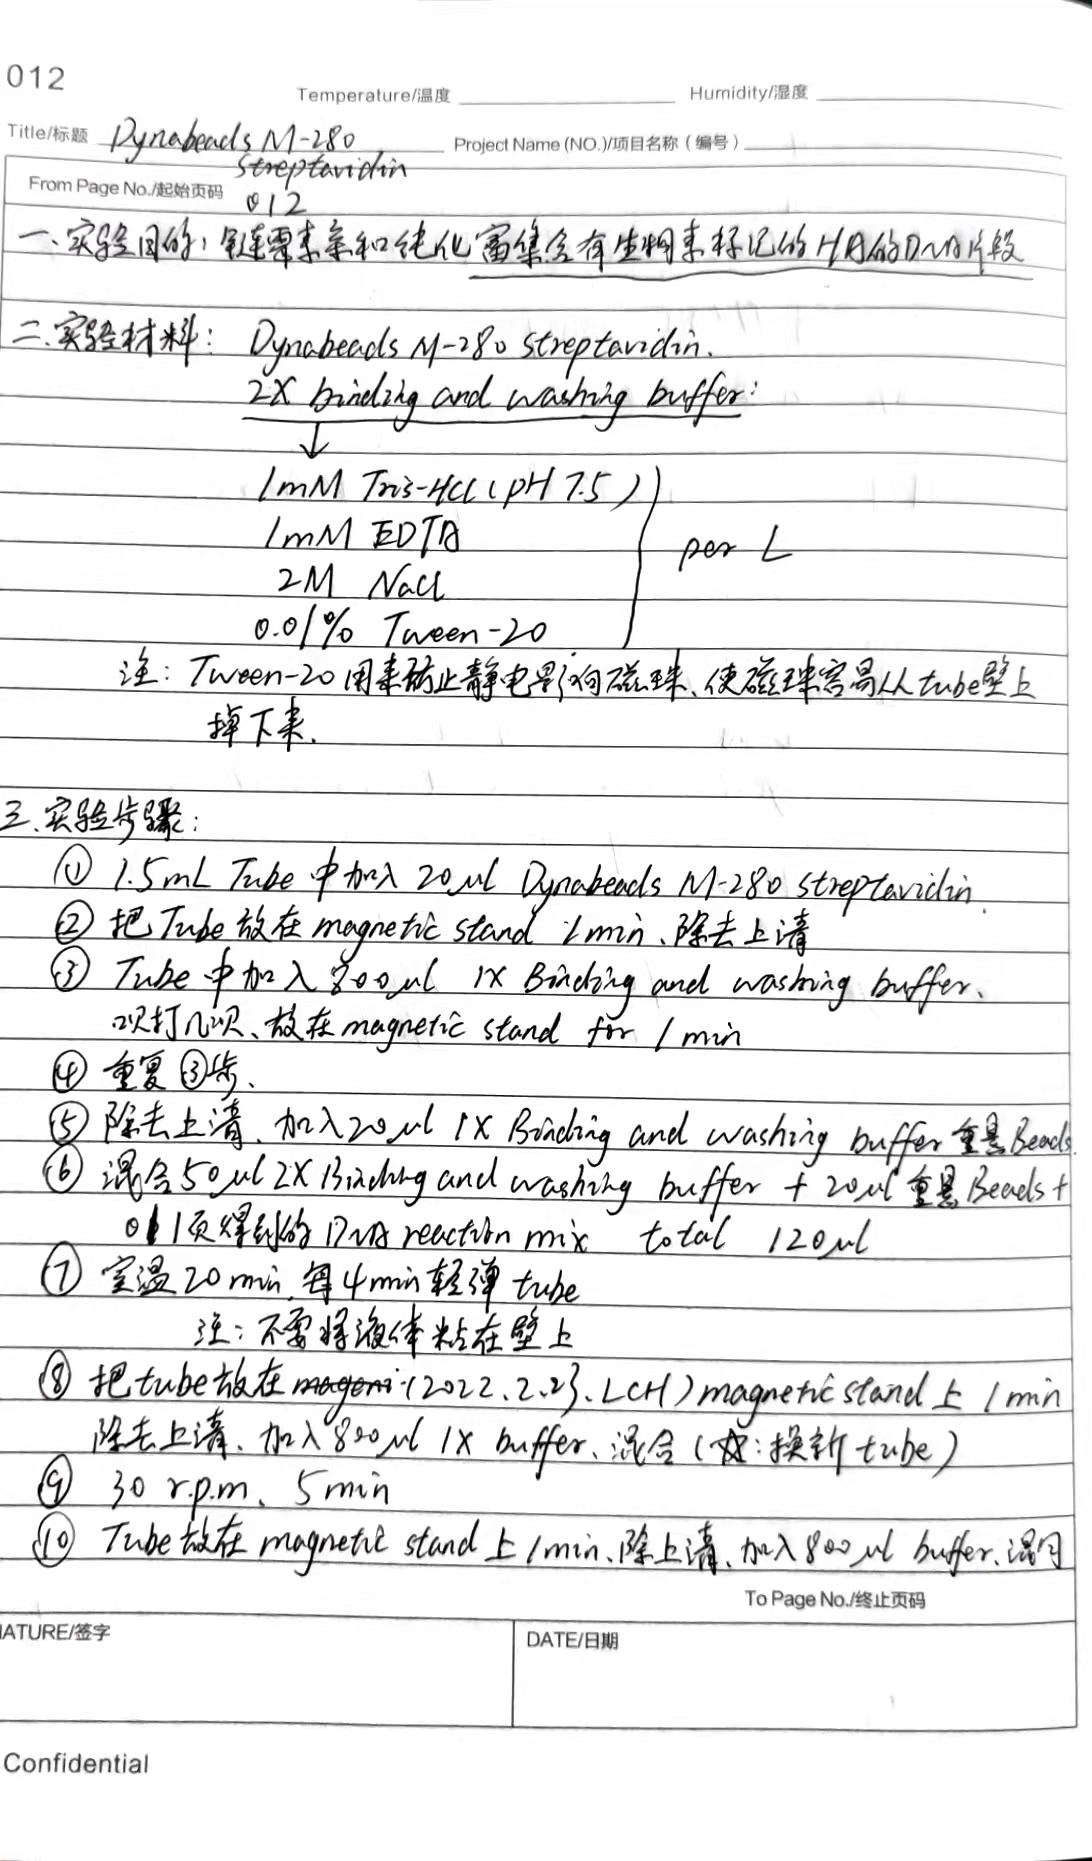 012
Temperature/温度 Humidity/湿度
Title/标题 Dynabeads M-280 Project Name (NO.)/项目名称（编号）
streptavidin
From Page No./起始页码 012
一、实验目的：链霉素亲和纯化富集含有生物素标记的HA的DNA片段
二、实验材料： Dynabeads M-280 streptavidin.
2X binding and washing buffer:
↓
1mM Tris-HCl (pH 7.5)
1mM EDTA
per L
2M NaCl
0.01% Tween-20
注：Tween-20用来防止静电影响磁珠、使磁珠容易从tube壁上
掉下来.
三、实验步骤：
① 1.5mL Tube 中加入 20μl Dynabeads M-280 streptavidin.
② 把Tube放在magnetic stand 1min、除去上清
③ Tube中加入800μl 1X Binding and washing buffer、
吹打几次、放在magnetic stand for 1 min
④ 重复③步、
⑤ 除去上清、加入20μl 1X Binding and washing buffer重悬Beads.
⑥ 混合50μl 2X Binding and washing buffer + 20μl重悬Beads +
011页得到的DNA reaction mix total 120μl
⑦ 室温20min,每4min轻弹tube
注：不要将液体粘在壁上
⑧ 把tube放在 (2022.2.23.LCH) magnetic stand上 1min
除去上清、加入800μl 1X buffer、混合 ( :换新tube)
⑨ 30 r.p.m、5min
⑩ Tube放在magnetic stand上1min、除上清、加入800μl buffer、混匀
To Page No./终止页码
ATURE/签字 DATE/日期
Confidential